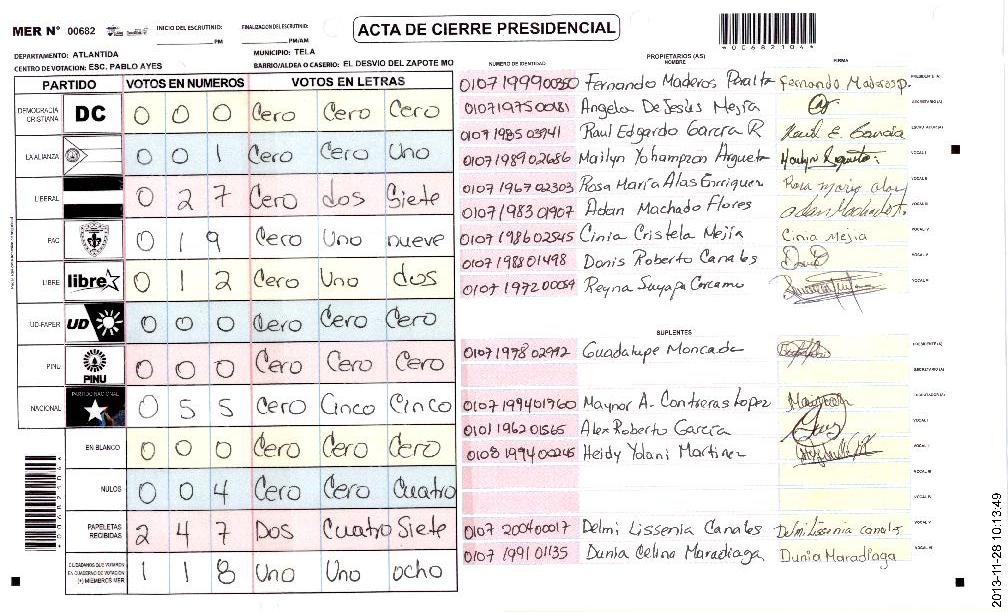 MER Nº 00682 INICIO DEL ESCRUTINIO: ____PM FINALIZACION DEL ESCRUTINIO: ____PM/AM ACTA DE CIERRE PRESIDENCIAL
DEPARTAMENTO: ATLANTIDA MUNICIPIO: TELA
CENTRO DE VOTACION: ESC. PABLO AYES BARRIO/ALDEA O CASERIO: EL DESVIO DEL ZAPOTE MO
PARTIDO VOTOS EN NUMEROS VOTOS EN LETRAS
DEMOCRACIA CRISTIANA DC 0 0 0 Cero Cero Cero
LA ALIANZA 0 0 1 Cero Cero Uno
LIBERAL 0 2 7 Cero dos Siete
PAC 0 1 9 Cero Uno nueve
LIBRE libre 0 1 2 Cero Uno dos
UD-FAPER UD 0 0 0 Cero Cero Cero
PINU PINU 0 0 0 Cero Cero Cero
NACIONAL PARTIDO NACIONAL 0 5 5 Cero Cinco Cinco
EN BLANCO 0 0 0 Cero Cero Cero
NULOS 0 0 4 Cero Cero Cuatro
PAPELETAS RECIBIDAS 2 4 7 Dos Cuatro Siete
CIUDADANOS QUE VOTARON EN CUADERNO DE VOTACION (+) MIEMBROS MER 1 1 8 Uno Uno ocho
NUMERO DE IDENTIDAD PROPIETARIOS (AS) NOMBRE FIRMA
0107 1999 00350 Fernando Maderos Peralta Fernando Maderos P. PRESIDENTE (A)
0107 1975 00181 Angela De Jesus Mejia SECRETARIO (A)
0107 1985 03941 Raul Edgardo Garcia R Raul E. Garcia ESCRUTADOR (A)
0107 1989 02686 Mailyn Yohampzon Argueta VOCAL I
0107 1967 02303 Rosa María Alas Enriquez Rosa maria alas VOCAL II
0107 1983 01907 Adan Machado Flores adan Machado f. VOCAL III
0107 1986 02545 Cinia Cristela Mejía Cinia Mejia VOCAL IV
0107 1988 01498 Donis Roberto Canales VOCAL V
0107 1972 00054 Reyna Suyapa Carcamo VOCAL VI
SUPLENTES
0107 1978 02992 Guadalupe Moncada PRESIDENTE (A)
SECRETARIO (A)
0107 1994 01760 Maynor A. Contreras Lopez ESCRUTADOR (A)
0101 1962 01565 Alex Roberto García VOCAL I
0108 1994 00245 Heidy Yolani Martinez VOCAL II
VOCAL III
VOCAL IV
0107 2004 00017 Delmi Lissenia Canales Delmi Lissenia canales VOCAL V
0107 1991 01135 Dunia Celina Maradiaga Dunia Maradiaga VOCAL VI
2013-11-28 10:13:49